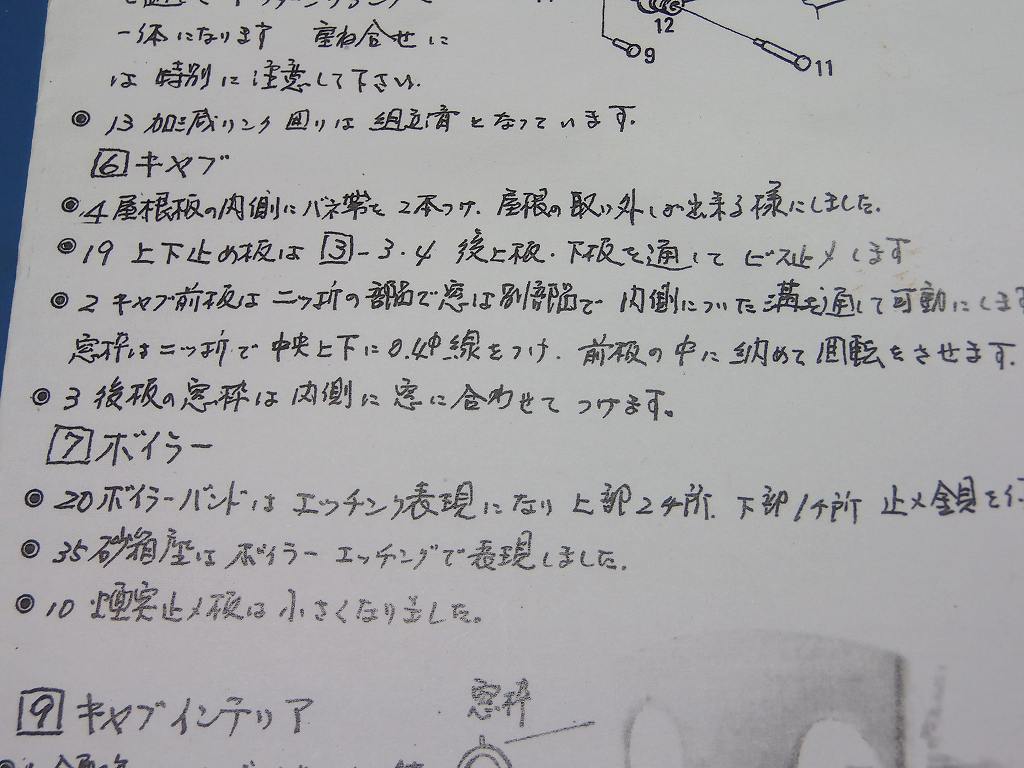 12
9
11
一体になります 重ね合せに
は 特別に注意して下さい.
13 加減リンク回りは組立済となっています.
6 キャブ
4 屋根板の内側にバネ帯を2本つけ. 屋根の取り外しが出来る様にしました.
19 上下止め板は 3-3.4 後上板.下板を通して ビス止メします
2 キャブ前板は 二ッ折の部品で窓は別部品で 内側についた溝を通して可動にします
窓枠は二ッ折で 中央上下に0.4Φ線をつけ. 前板の中に納めて回転をさせます.
3 後板の窓枠は内側に窓に合わせてつけます。
7 ボイラー
20 ボイラーバンドは エッチング表現になり 上部2ヶ所. 下部1ヶ所 止メ金具を
35 砂箱座は ボイラー エッチングで表現しました.
10 煙突止メ板は小さくなりました。
9 キャブインテリア
窓枠